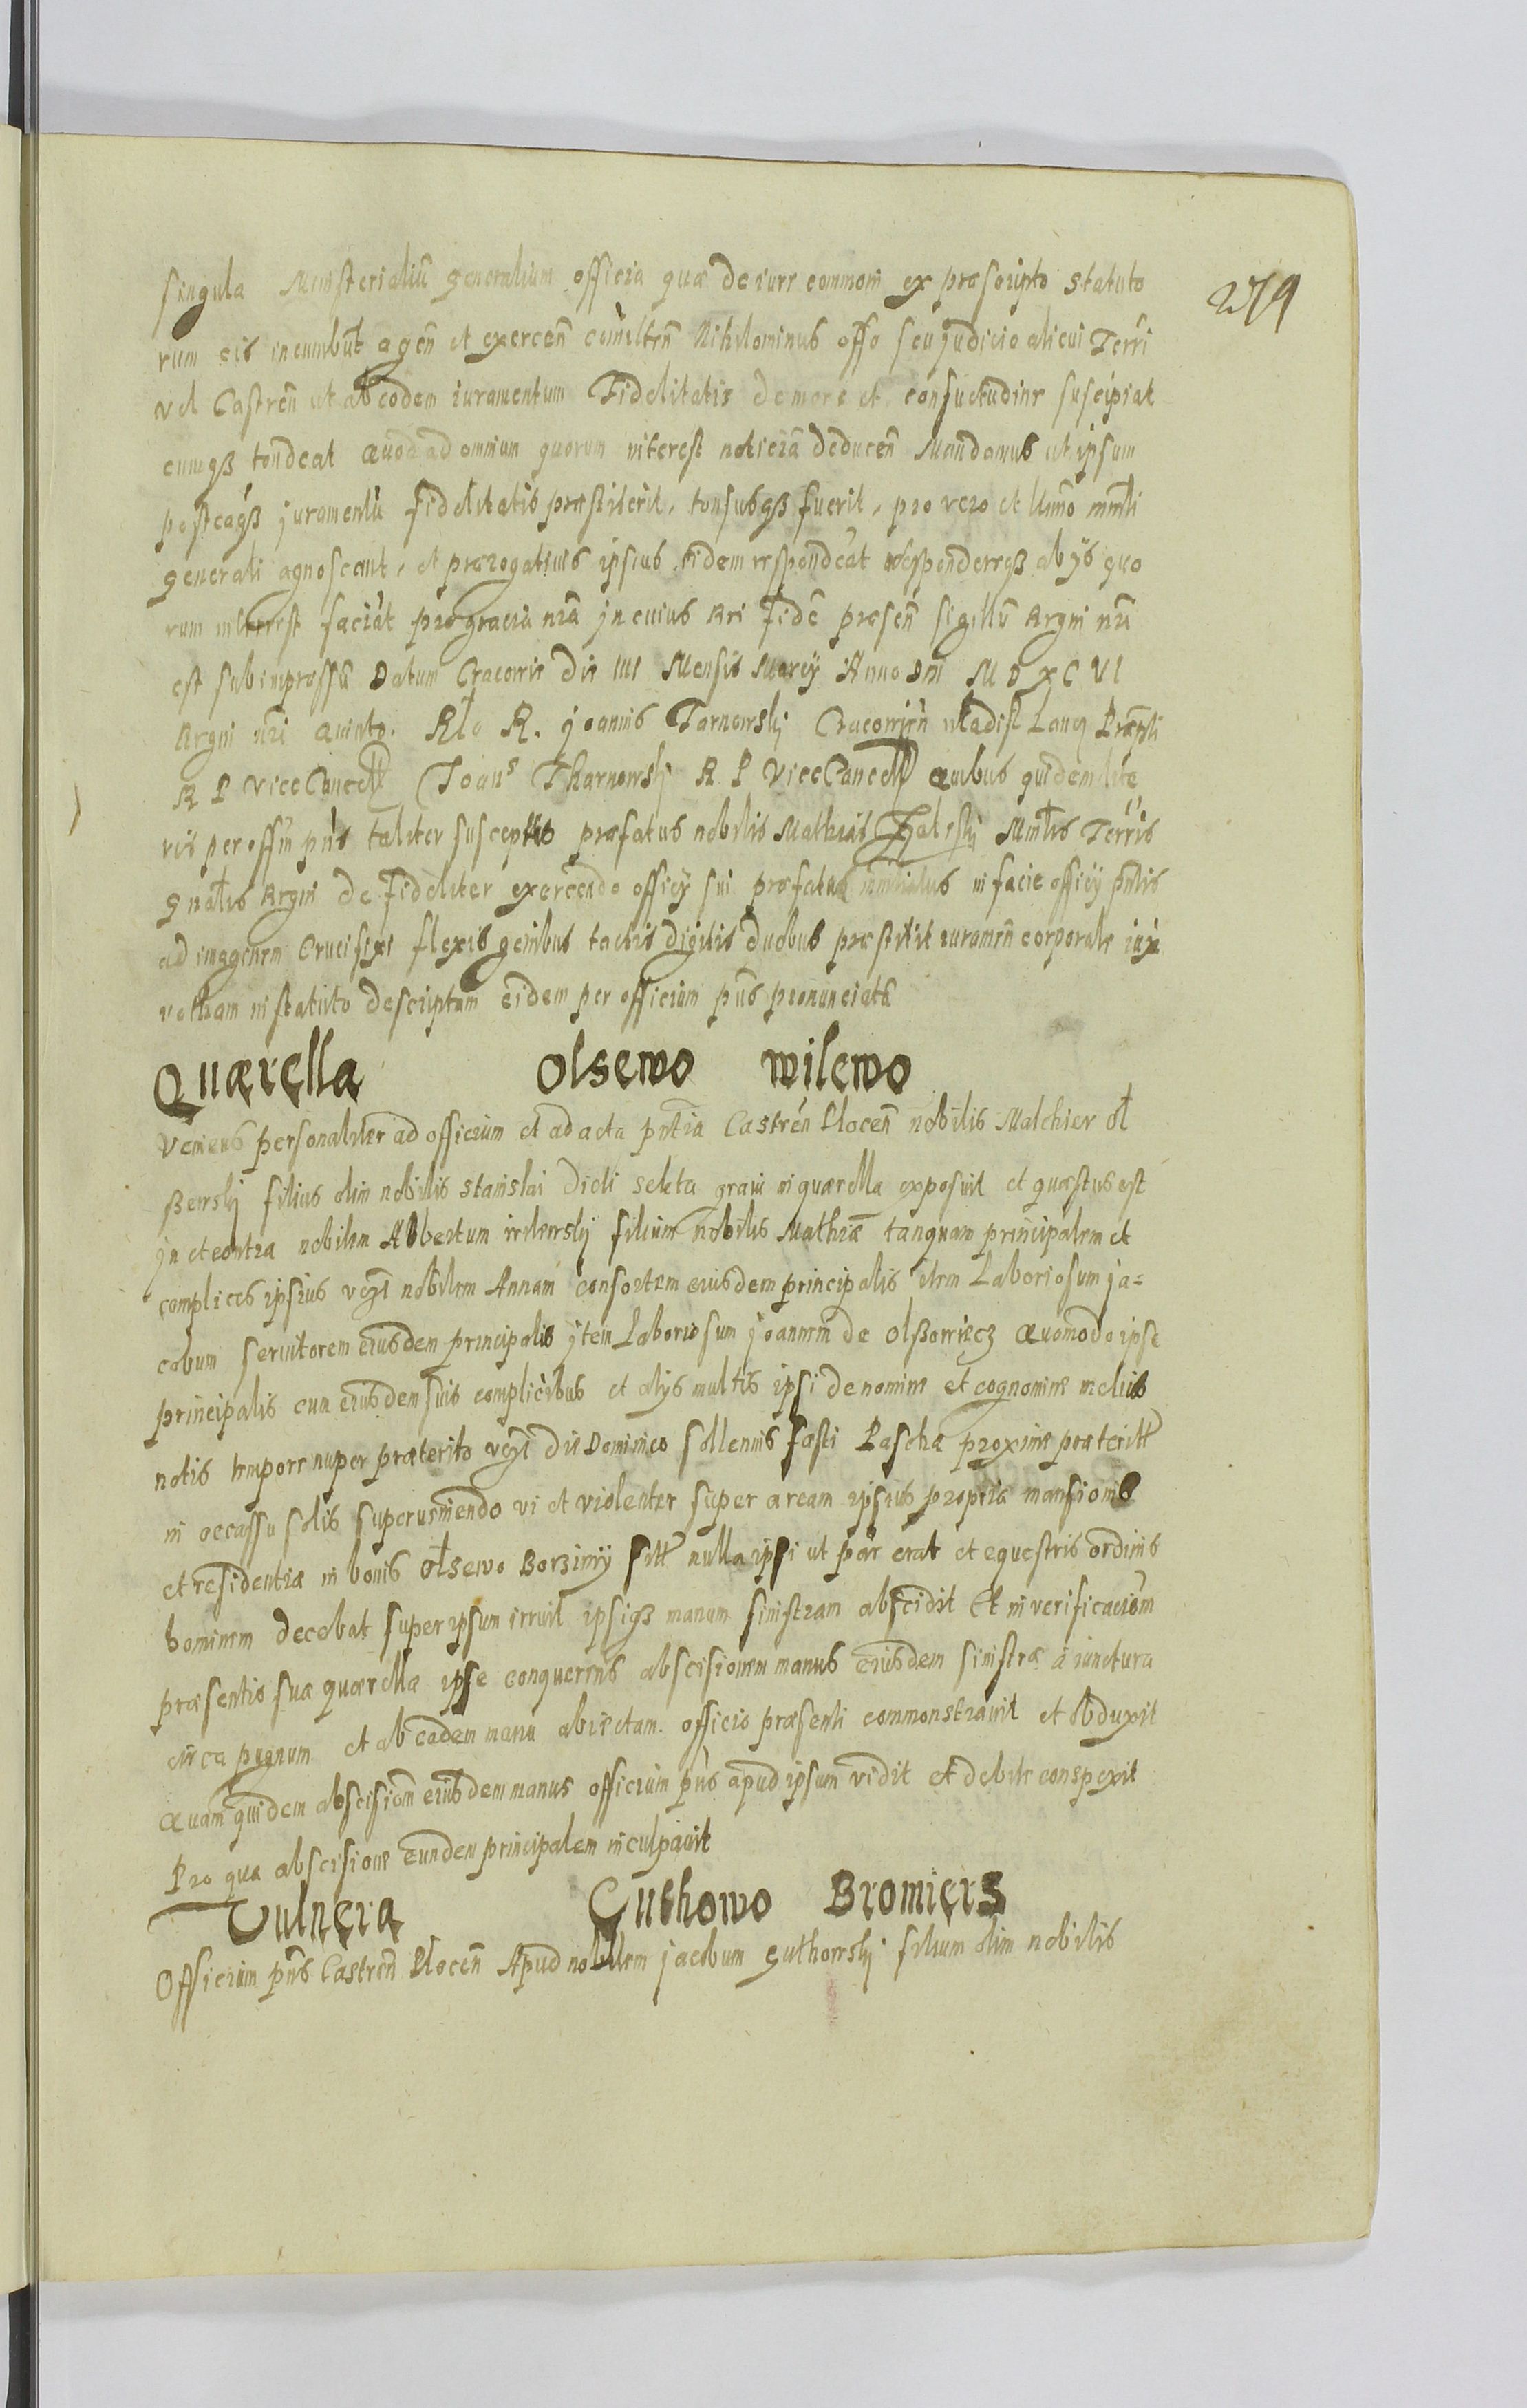 279
singula Ministerialiũ generalium officia quæ de iure commoni ex præscripto statuto
rum eis incumbũt agen̄ et exercen̄ Nihilominus offo seu judicio alicui Terri
vel Castren̄ ut ab eodem iuramentum Fidelitatis de more et consuetudine suscipiat
eumqß tondeat Quod ad omnium quorum interest noticiã deducen̄ Mandamus ut ipsum
posteaqß juramentũ fidelitatis præstiterit, tonsusqß fuerit, pro vero et
generali agnoscant, et prærogativis ipsius fidem respondeãt respondereqß ab ijs quo
rum interest faciãt pro gracia nr̃a jn cuius Rei fidẽ præsen̄ sigillũ Regni nr̃i
est subimpressũ Datum Cracovie die IIII Mensis Marcij Anno Dni M D XC VI
Regni nr̃i Quinto. Rl̃o R. joannis Tarnowskj Cracovien̄ Præpti
R P ViceCancell Joans Tharnowskj R P ViceCancell Quibus quidem lite
ris per offm pn̄s taliter susceptis præfatus nobilis Mathias Minl̃is Terris
Gnal̃is Regni de fideliter exercendo officij sui præfatus in facie officij pn̄tis
ad imaginem Crucifixi flexis genibus tactis digitis duobus præstitit iuramen̄ corporale iux
rotham in statuto descriptam eidem per officium pn̄s pronunciatã
Quærella Olsewo Wilewo
Veniens personaliter ad officium et ad acta pn̄tia Castren̄ Plocen̄ nobilis Malchier Ol
ßewskj filius olim nobilis Stanislai dicti graui in quærella exposuit et quæstus est
jn et contra nobilem Albertum filium nobilis Mathiæ tanquam principalem et
complices ipsius nobilem Annam consortem eiusdem principalis item Laboriosum ja=
cobum seruitorem eiusdem principalis jtem Laboriosum joannem de Quomodo ipse
principalis cum eiusdem suis complicibus et alijs multis ipsi de nomine et cognomine melius
notis tempore nuper præterito die Dominico sollennis festi Paschæ proxime præteritt
in occassu solis superueniendo vi et violenter super aream ipsius propriæ mansionis
et residentiæ in bonis Olsewo Borzimij sitt nulla ipsi ut par erat et equestris ordinis
hominem decebat super ipsum irruit ipsiqß manum sinistram abscidit Et in verificaciõm
præsentis suæ quærellæ ipse conquerens abscisionem manus eiusdem sinistræ a iunctura
circa pugnum et ab eadem manu abiectam officio præsenti commonstrauit et obduxit
Quam quidem abscisiom̄ eiusdem manus officium pn̄s apud ipsum vidit et debite conspexit
Pro qua abscisione eundem principalem inculpauit
Vulnera Guthowo Bromierz
Officium pn̄s Castren̄ Plocen̄ Apud nobilem jacobum Guthowskj filium olim nobilis